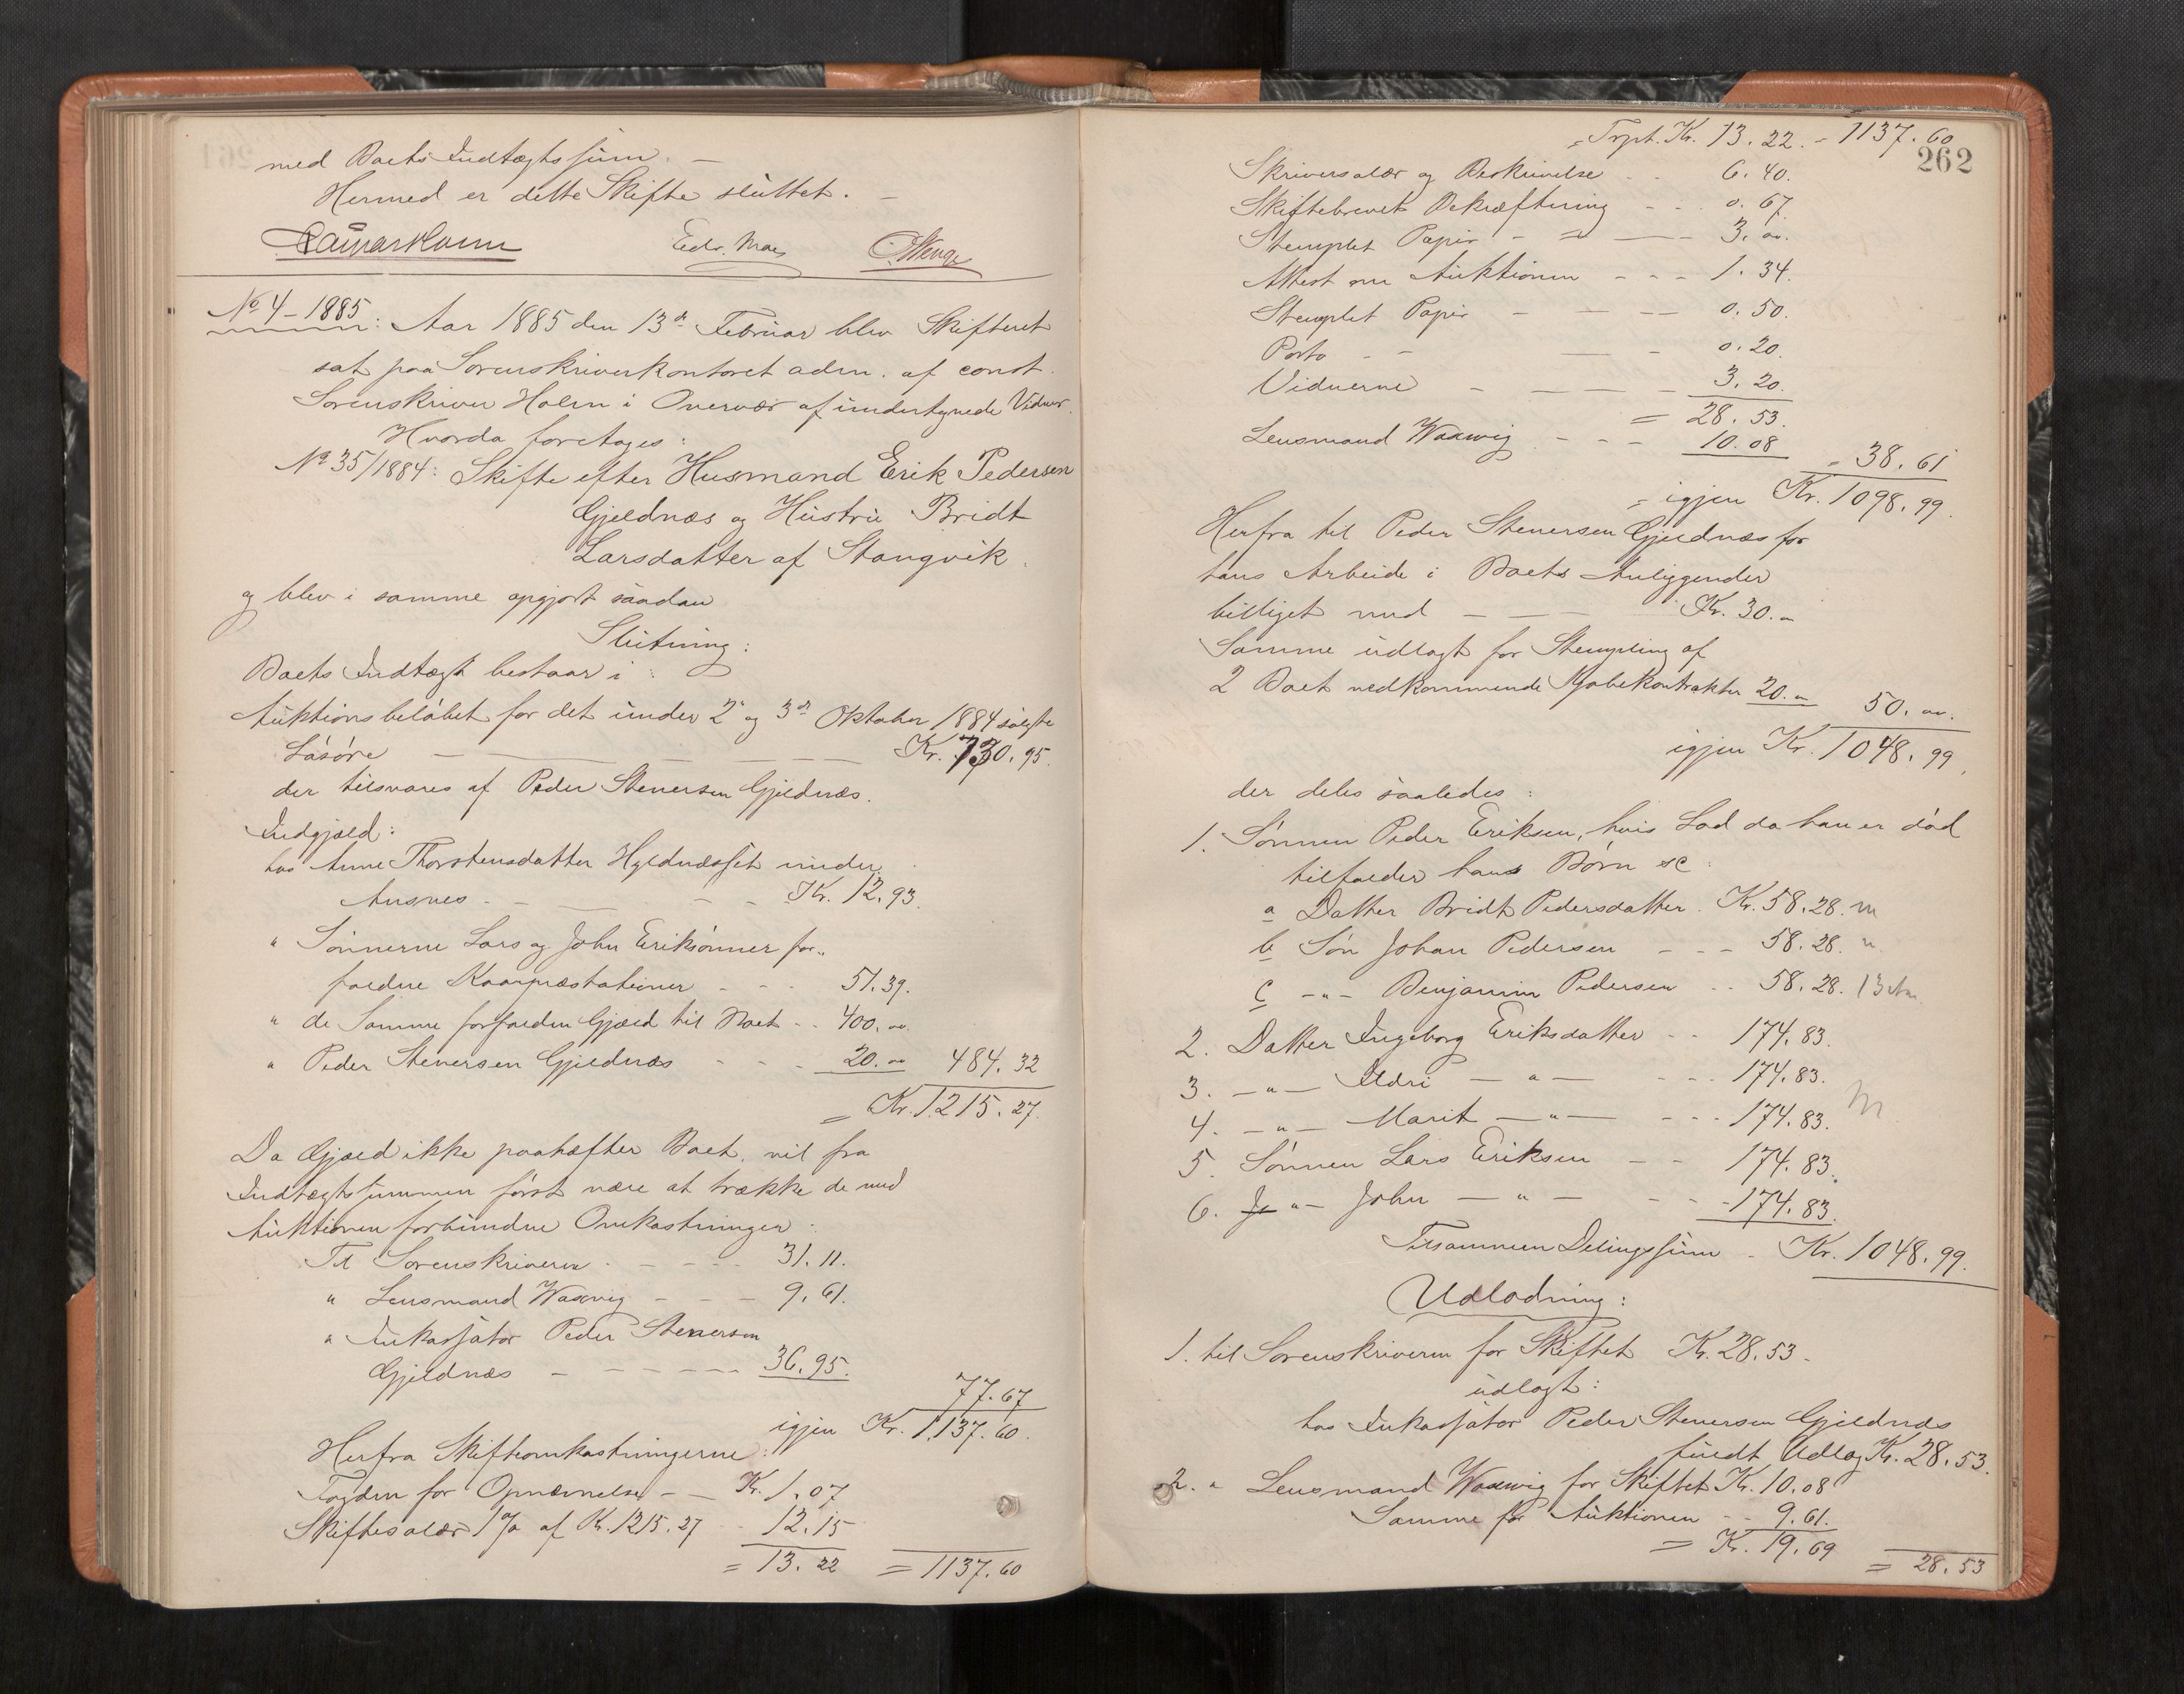 med Boets Indtægtssum. —
Hermed er dette Skifte sluttet. —
Edv. Moe
No 4 - 1885: Aar 1885 den 13de Februar blev Skifteret
sat paa Sorenskriverkontoret adm. af const.
Sorenskriver Holm i Overvær af undertegnede Vidner.
Hvorda foretoges:
No 35/1884: Skifte efter Husmand Erik Pedersen
Gjeldnæs og Hustru Bridt
Larsdatter af Stangvik.
og blev i samme opgjort saadan
Slutning:
Boets Indtægt bestaar i:
Auktionsbeløbet for det under 2d og 3de Oktober 1884 solgte
Løsøre — — — — Kr. 730.95.
der tilsvares af Peder Stenersen Gjeldnæs.
Indgjæld:
hos Anne Thorstensdatter Hyldnæsset under
Aasnes - — - - Kr. 12.93.
" Sønnerne Lars og John Erikssønner for-
faldne Kaarpræstationer - - - 51.39.
" de Samme forfalden Gjæld til Boet - - 400. "
" Peder Stenersen Gjeldnæs - - - 20. " 484.32
= Kr. 1215.27.
Da Gjæld ikke paahæfter Boet, vil fra
Indtægtssummen først være at trække de med
Auktionen forbundne Omkostninger:
Til Sorenskriveren - - - - 31.11.
" Lensmand Waxvig - - - 9.61.
" Inkassator Peder Stenersen
Gjeldnæs - - - - - 36.95.
77.67
igjen Kr. 1137.60.
Herfra Skifteomkostningerne:
Fogden for Opnævnelse - — Kr. 1.07
Skiftesalær 1 % af Kr. 1215.27 - - 12.15
= 13.22 = 1137.60
= Trpt. Kr. 13.22. = 1137.60
262
Skriversalær og Beskrivelse - - 6.40.
Skiftebrevet Bekræftning - - - 0.67.
Stemplet Papir - = — 3. "
Attest om Auktionen - - - 1.34.
Stemplet Papir - — — 0.50.
Porto - - — - 0.20.
Vidnerne - — — - 3.20.
= 28.53.
Lensmand Waxvig - - - 10.08
= 38.61
= igjen Kr. 1098.99.
Herfra til Peder Stenersen Gjeldnæs for
hans Arbeide i Boets Anliggender
billiget med - — - Kr. 30. "
Samme udlagt for Stempling af
2 Boet vedkommende Kjøbekontrakter 20. " 50. "
igjen Kr. 1048.99.
der deles saaledes:
1. Sønnen Peder Eriksen, hvis Lod da han er død
tilfalder hans Børn sc:
a Datter Bridt Pedersdatter. Kr. 58.28. m
b Søn Johan Pedersen - - - 58.28. "
c - " - Benjamin Pedersen - - 58.28.
2. Datter Ingeborg Eriksdatter - - 174.83.
3. — " — Ildri — " — - - - 174.83.
4. — " — Marit — " — - - - 174.83. m
5. Sønnen Lars Eriksen - - 174.83.
6. " - John — " — - - - 174.83.
Tilsammen Delingssum - Kr. 1048.99.
Udlodning:
1. til Sorenskriveren for Skiftet Kr. 28.53.
udlagt:
hos Inkassator Peder Stenersen Gjeldnæs
fuldt Udlæg Kr. 28.53.
2. " Lensmand Waxvig for Skiftet Kr. 10.08
Samme for Auktionen - - 9.61.
= Kr. 19.69 = 28.53